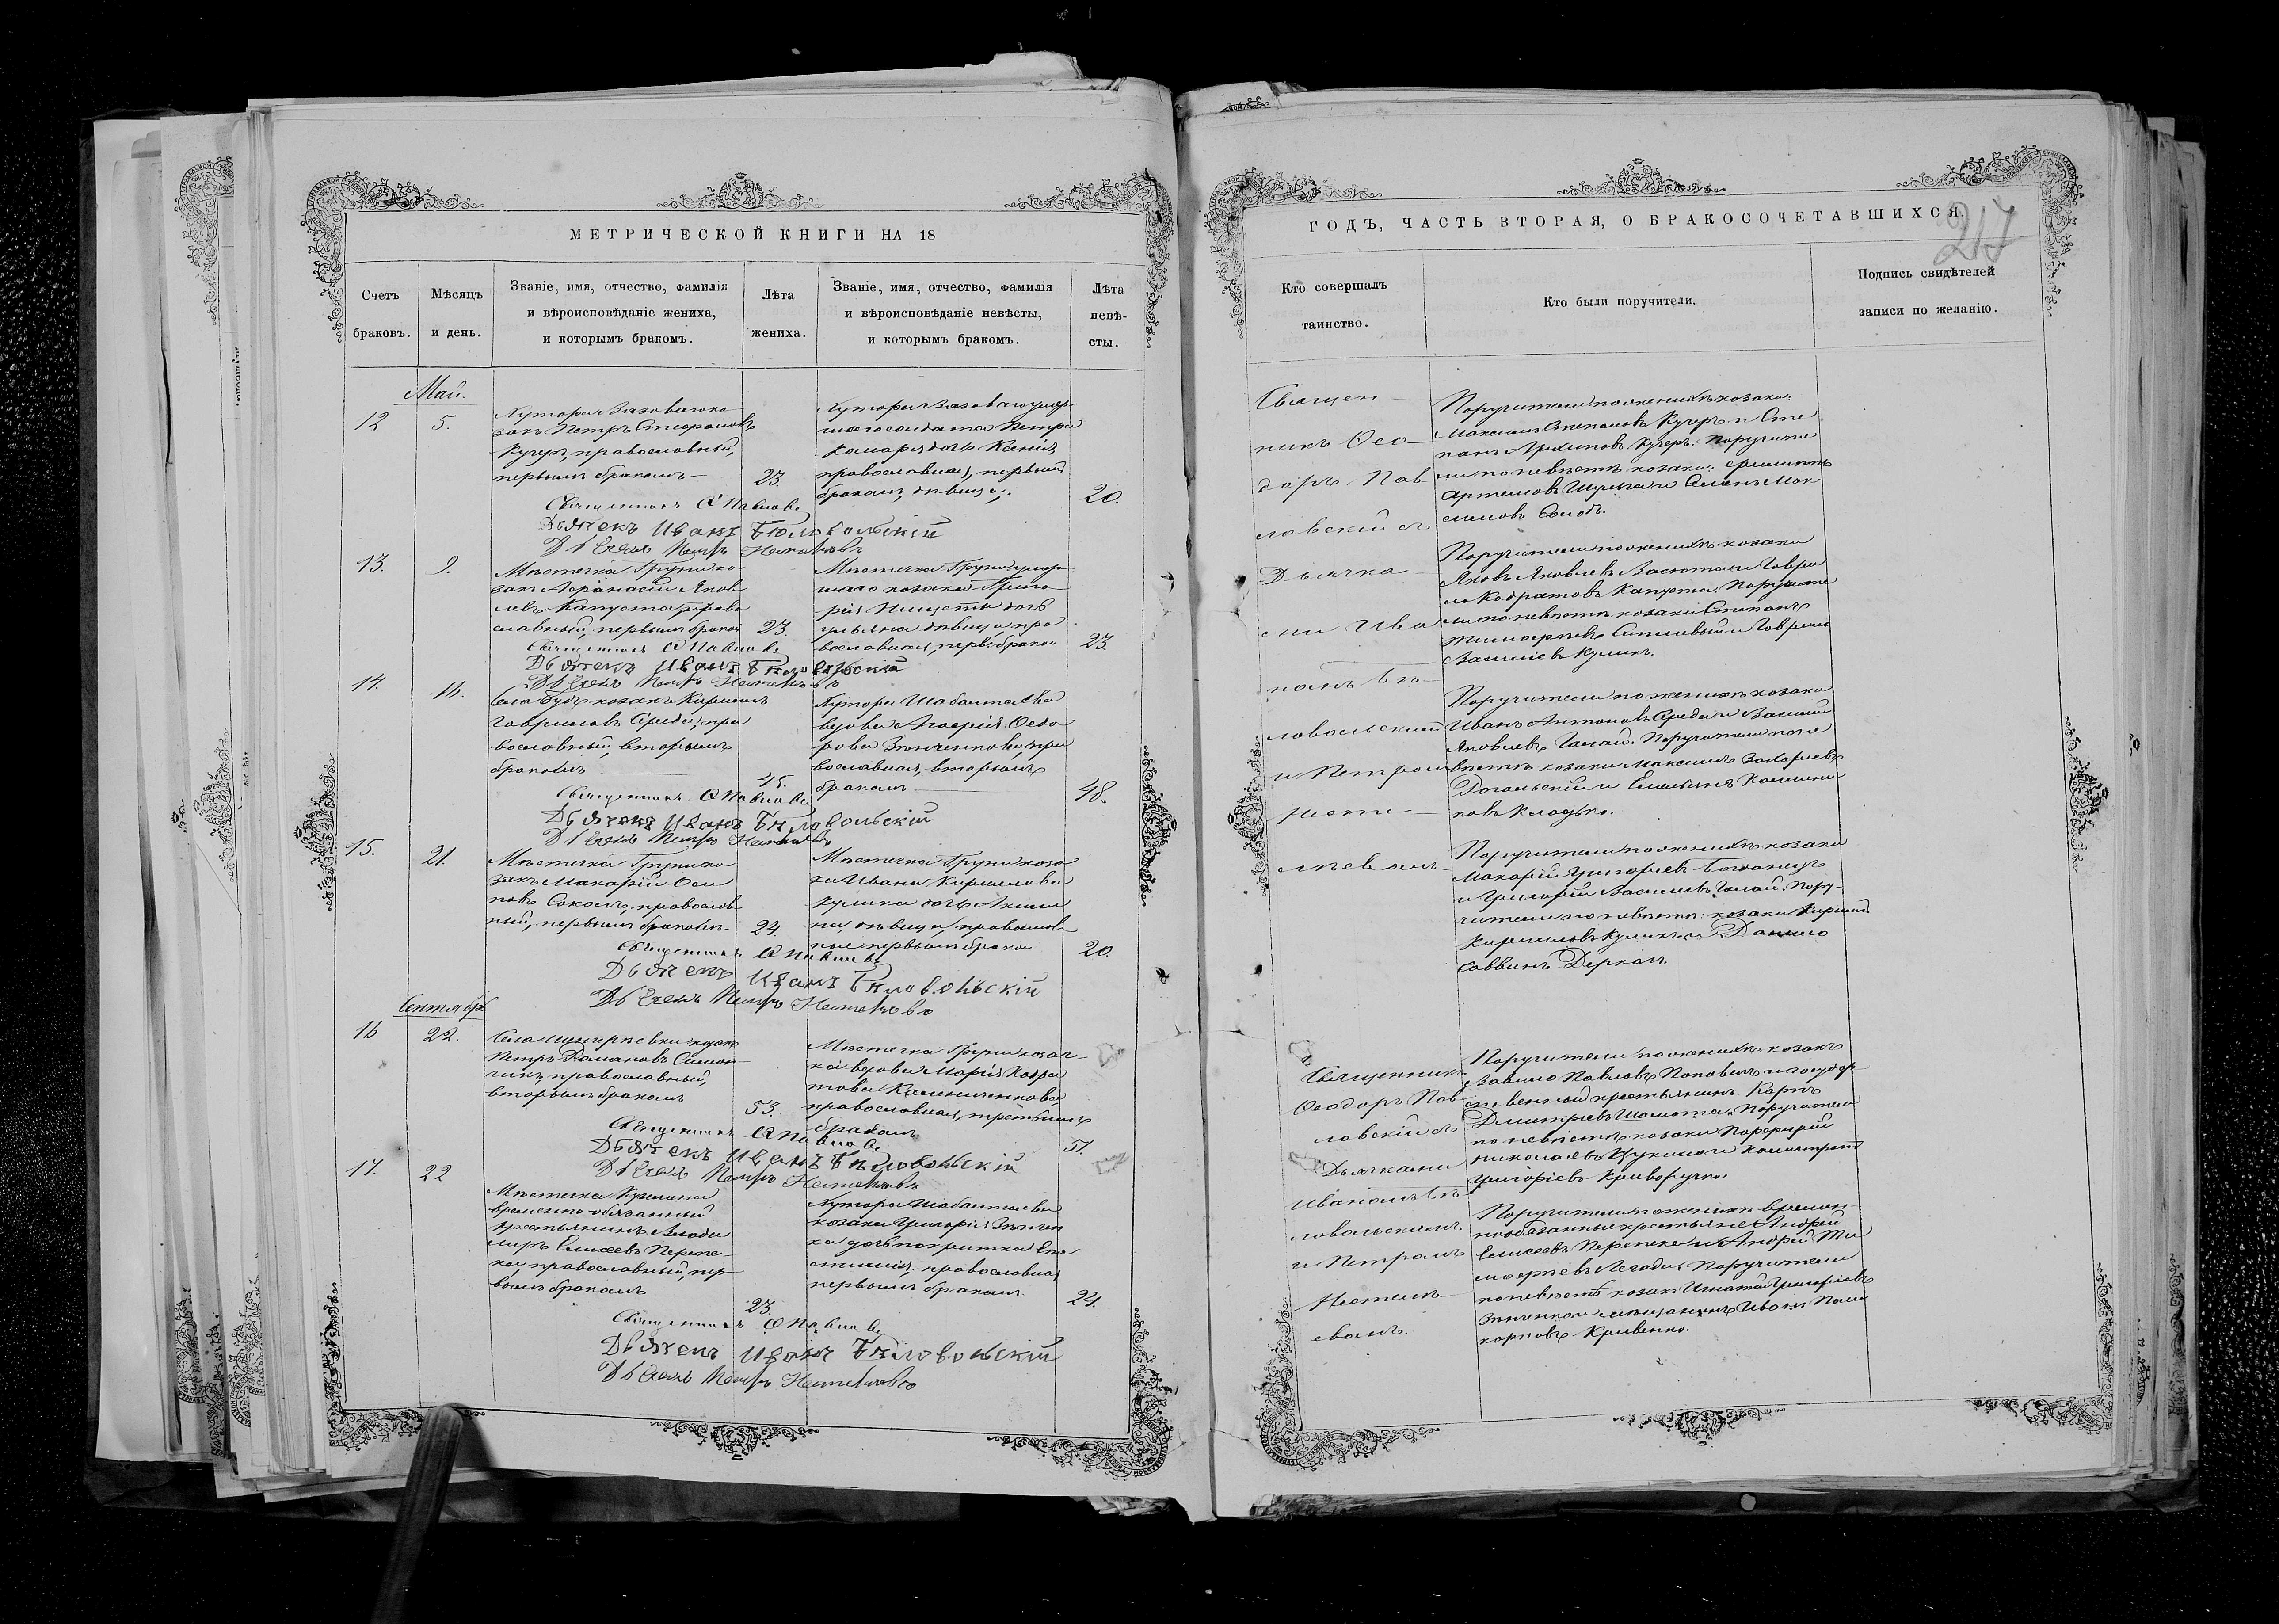 МЕТРИЧЕСКОЙ КНИГИ НА 18
Счетъ браковъ.
Мѣсяцъ и день.
Званіе, имя, отчество, фамилія
и вѣроисповѣданіе жениха,
и которымъ бракомъ.
Лѣта
жениха.
Званіе, имя, отчество, фамилія
и вѣроисповѣданіе невѣсты,
и которымъ бракомъ.
Лѣта
невѣ-
сты.
Май.
12
5.
Хутора ко
закъ Петръ Стефановъ
Кучеръ, православный,
первымъ бракомъ
23.
Хутора умер
шаго солдата Петра
дочь Ксенія,
православная, первымъ
бракомъ, дѣвица.
20.
Священникъ Ѳ Павловс
Дьячекъ Иванъ Бѣловольскій
Дьячекъ Петръ
13.
9.
Мѣстечка Груни ко
закъ Аѳанасій Яков
левъ Капуста, право
славный, первымъ бракомъ
23.
Мѣстечка Груни умер
шаго козака Григо
рія дочь
Ульяна дѣвица, пра
вославная, первъ бракомъ
23.
Священникъ Ѳ Павловс
Дьячекъ Иванъ Бѣловольскій
Дьячекъ Петръ
14.
16.
Села козакъ Кириллъ
Гавриловъ Середа, пра
вославный, вторымъ
бракомъ
45.
Хутора Шабалтаева
вдова Агафія Ѳедо
рова Зѣнченкова, пра
вославная, вторымъ
бракомъ
48.
Священникъ Ѳ Павловс
Дьячекъ Иванъ Бѣловольскій
Дьячекъ Петръ
15.
21.
Мѣстечка Груни ко
закъ Макарій Оси
повъ Соколъ, православ
ный, первымъ бракомъ
24.
Мѣстечка Груни коза
ка Ивана Кириллова
Кулика дочь Акили
на дѣвица, православ
ная первымъ бракомъ
20.
Священникъ Ѳ Павловс
Дьячекъ Иванъ Бѣловольскій
Дьячекъ Петръ
Сентябрь
16
22.
Села козакъ
Петръ Романовъ Симон
чикъ, православный,
вторымъ бракомъ
53.
Мѣстечка Груни козач
ка вдова Марія Кодра
това Калениченкова,
православная, третьимъ
бракомъ
51.
Священникъ Ѳ Павловс
Дьячекъ Иванъ Бѣловольскій
Дьячекъ Петръ
17.
22
Мѣстечка
временно-обязанный
крестьянинъ Влади
миръ Елисеевъ Перепе
ка, православный, пер
вымъ бракомъ
23.
Хутора Шабалтаева
козака Григорія Зѣнчен
ка дочь покритка Евѳ
имія, православная
первымъ бракомъ
24.
Священникъ Ѳ Павловс
Дьячекъ Иванъ Бѣловольскій
Дьячекъ Петръ
ГОДЪ, ЧАСТЬ ВТОРАЯ, О БРАКОСОЧЕТАВШИХСЯ.
217
Кто совершалъ
таинство.
Кто были поручители.
Подпись свидѣтелей
записи по желанію.
Священ
никъ Ѳео
доръ Пав
ловскій съ
Дьячка
ми Ива
номъ Бѣ
ловольскимъ
и Петромъ
Поручители по женихѣ козаки:
Максимъ Степановъ Кучеръ и Сте
панъ Архиповъ Кучеръ. Поручите
ли по невѣстѣ козаки: Филиппъ
Артемовъ и Семенъ Мак
симовъ
Поручители по женихѣ козаки
Яковъ Яковлевъ и Гаври
ло Кодратовъ Капуста. Поручите
ли по невѣстѣ козаки Степанъ
Тимофѣевъ и Гаврило
Василіевъ Куликъ.
Поручители по женихѣ козаки
Иванъ Антоновъ Середа и Василій
Яковлевъ Галай. Поручители по не
вѣстѣ козаки Максимъ Захаріевъ
и Емельянъ
новъ
Поручители по женихѣ козаки
Макарій Григоріевъ
и Григорій Василіевъ Галай. Пору-
чители по невѣстѣ: козаки Кириллъ
Кирилловъ Куликъ и Данило
Саввинъ Деркач.
Священникъ
Ѳеодоръ Пав
ловскій съ
Дьячками
Иваномъ Бѣ
ловольскимъ
и Петромъ
Поручители по женихѣ козакъ
Вавило Павловъ Поповичъ и государ-
ственный крестьянинъ Карпъ
Дмитріевъ Поручители
по невѣстѣ козаки Порфирій
Николаевъ и Калистратъ
Григоріевъ Криворучко.
Поручители по женихѣ времен-
нообязанные крестьяне Андрей
Елисеевъ Перепека и Андрей Ти
мофѣевъ Поручители
по невѣстѣ козакъ Игнатій Григоріевъ
Зѣнченко и мѣщанинъ Иванъ Поли
карповъ Кривенко.